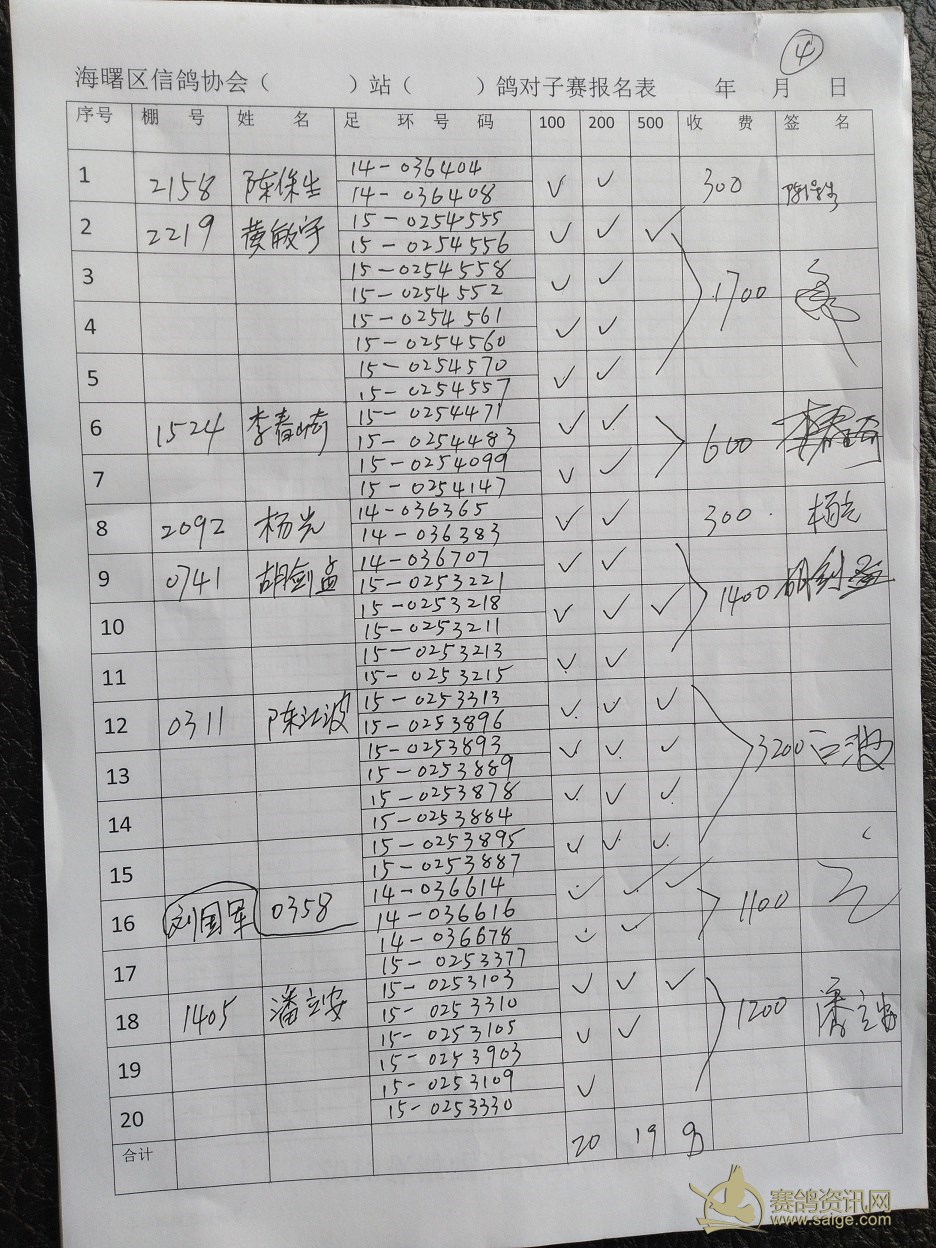 ④
海曙区信鸽协会（ ）站（ ）鸽对子赛报名表 年 月 日
序号 棚 号 姓 名 足 环 号 码 100 200 500 收 费 签 名
1 2158 陈保生 14-036404 ✓ ✓ 300 陈保生
14-036408
2 2219 黄敏宇 15-0254555 ✓ ✓ ✓ 1700
15-0254556
3 15-0254558 ✓ ✓
15-0254552
4 15-0254561 ✓ ✓
15-0254560
5 15-0254570 ✓ ✓
15-0254557
6 1524 李春崎 15-0254471 ✓ ✓ 600 李春崎
15-0254483
7 15-0254099 ✓ ✓
15-0254147
8 2092 杨光 14-036365 ✓ ✓ 300 杨光
14-036383
9 0741 胡剑孟 14-036707 ✓ ✓ 1400
15-0253221
10 15-0253218 ✓ ✓ ✓
15-0253211
11 15-0253213 ✓ ✓
15-0253215
12 0311 陈江波 15-0253313 ✓ ✓ ✓ 3200 江波
15-0253896
13 15-0253893 ✓ ✓ ✓
15-0253889
14 15-0253878 ✓ ✓ ✓
15-0253884
15 15-0253895 ✓ ✓ ✓
15-0253887
16 刘国军 0358 14-036614 ✓ ✓ ✓ 1100
14-036616
17 14-036678 ✓ ✓
15-0253377
18 1405 潘立安 15-0253103 ✓ ✓ ✓ 1200 潘立安
15-0253310
19 15-0253105 ✓ ✓
15-0253903
20 15-0253109 ✓
15-0253330
合计 20 19 8
赛鸽资讯网
www.saige.com